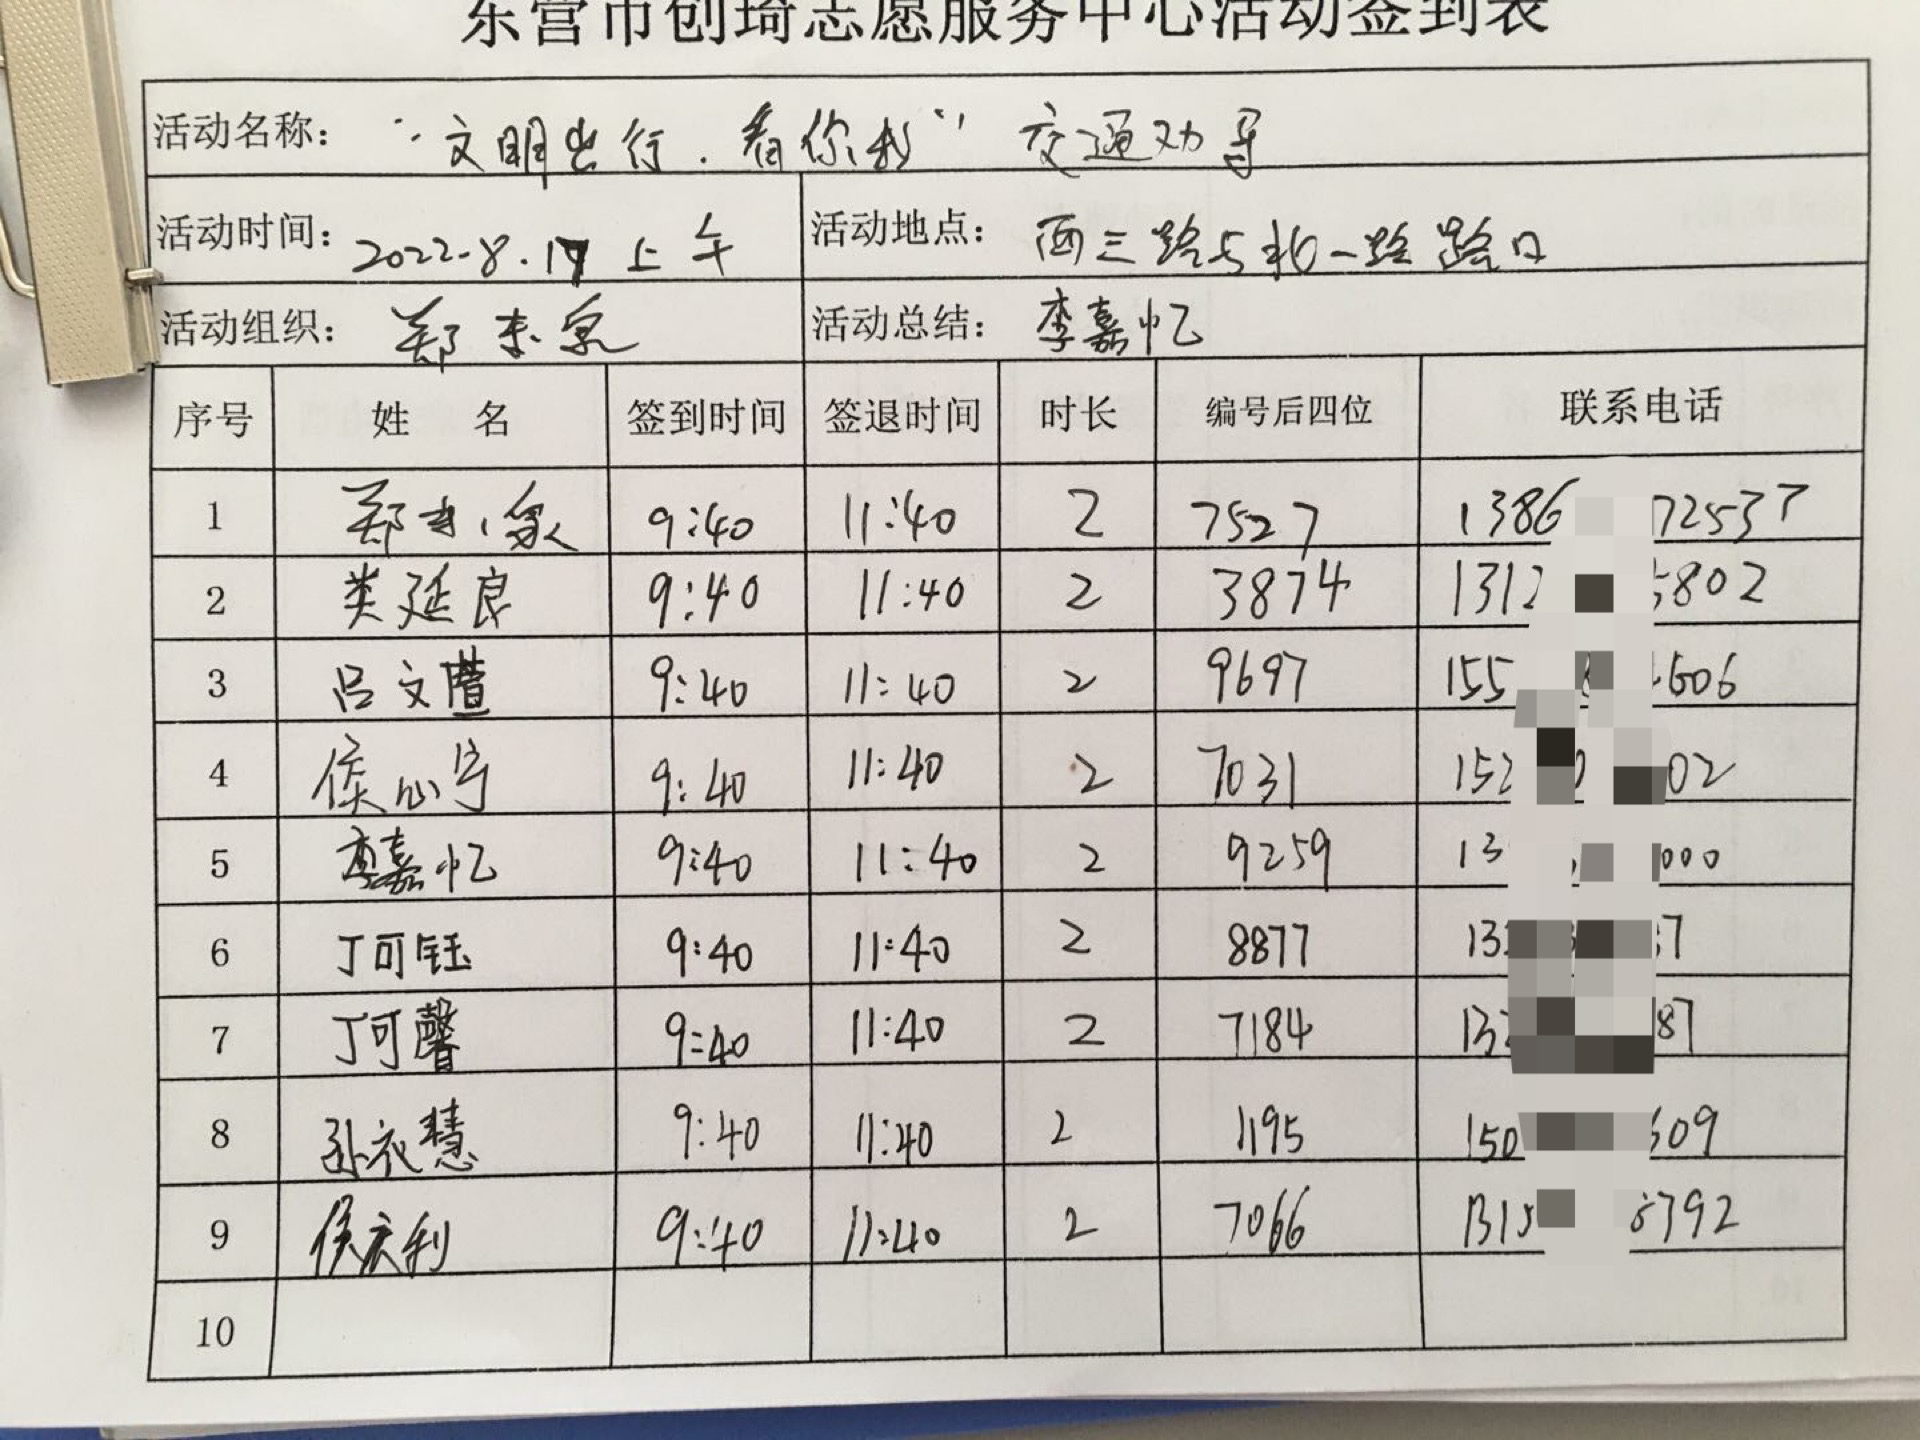 东营市创琦志愿服务中心活动签到表
活动名称： “文明出行.看你我” 交通劝导
活动时间： 2022.8.17 上午 活动地点： 西三路与北一路路口
活动组织： 郑 活动总结： 李嘉忆
序号 姓 名 签到时间 签退时间 时长 编号后四位 联系电话
1 郑 9:40 11:40 2 7527 1386 72537
2 类延良 9:40 11:40 2 3874 1312 5802
3 吕文萱 9:40 11:40 2 9697 155 606
4 侯心宁 9:40 11:40 2 7031 152 02
5 李嘉忆 9:40 11:40 2 9259 13 000
6 丁可钰 9:40 11:40 2 8877 13 7
7 丁可馨 9:40 11:40 2 7184 13 87
8 孙衣慧 9:40 11:40 2 1195 150 609
9 侯庆利 9:40 11:40 2 7066 1315 792
10